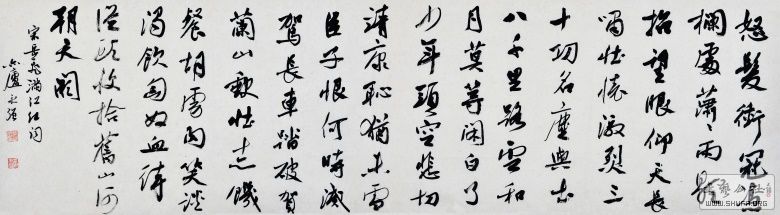 怒髮衝冠憑
欄處瀟〻雨歇
抬望眼仰天長
嘯壯懷激烈三
十功名塵與土
八千里路雲和
月莫等閑白了
少年頭空悲切
靖康恥猶未雪
臣子恨何時滅
駕長車踏破賀
蘭山缺壯志饑
餐胡虜肉笑談
渴飲匈奴血待
從頭收拾舊山河
朝天闕
宋岳飛滿江紅詞
WWW.SHUFA.ORG